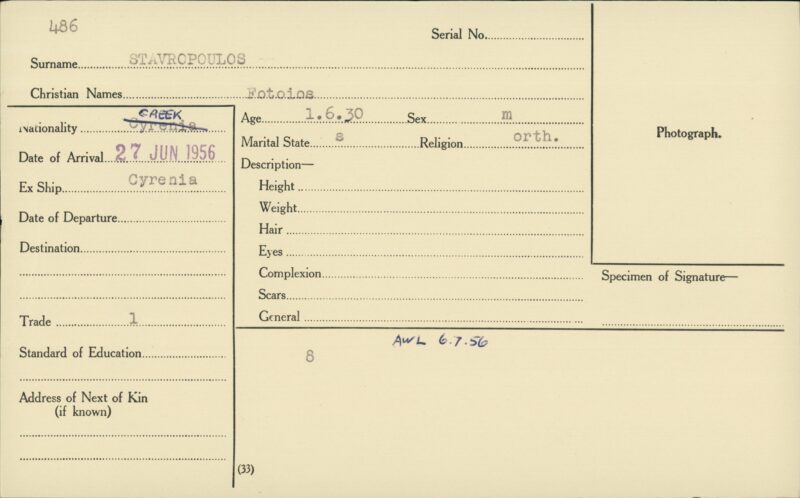 486
Serial No.
Surname STAVROPOULOS
Christian Names Fotoios
Nationality Cyrenia GREEK
Date of Arrival 27 JUN 1956
Ex Ship Cyrenia
Date of Departure
Destination
Trade 1
Standard of Education
Address of Next of Kin
(if known)
Age 1.6.30 Sex m
Marital State s Religion orth.
Description—
Height
Weight
Hair
Eyes
Complexion
Scars
General
Photograph.
Specimen of Signature—
AWL 6.7.56
8
(33)